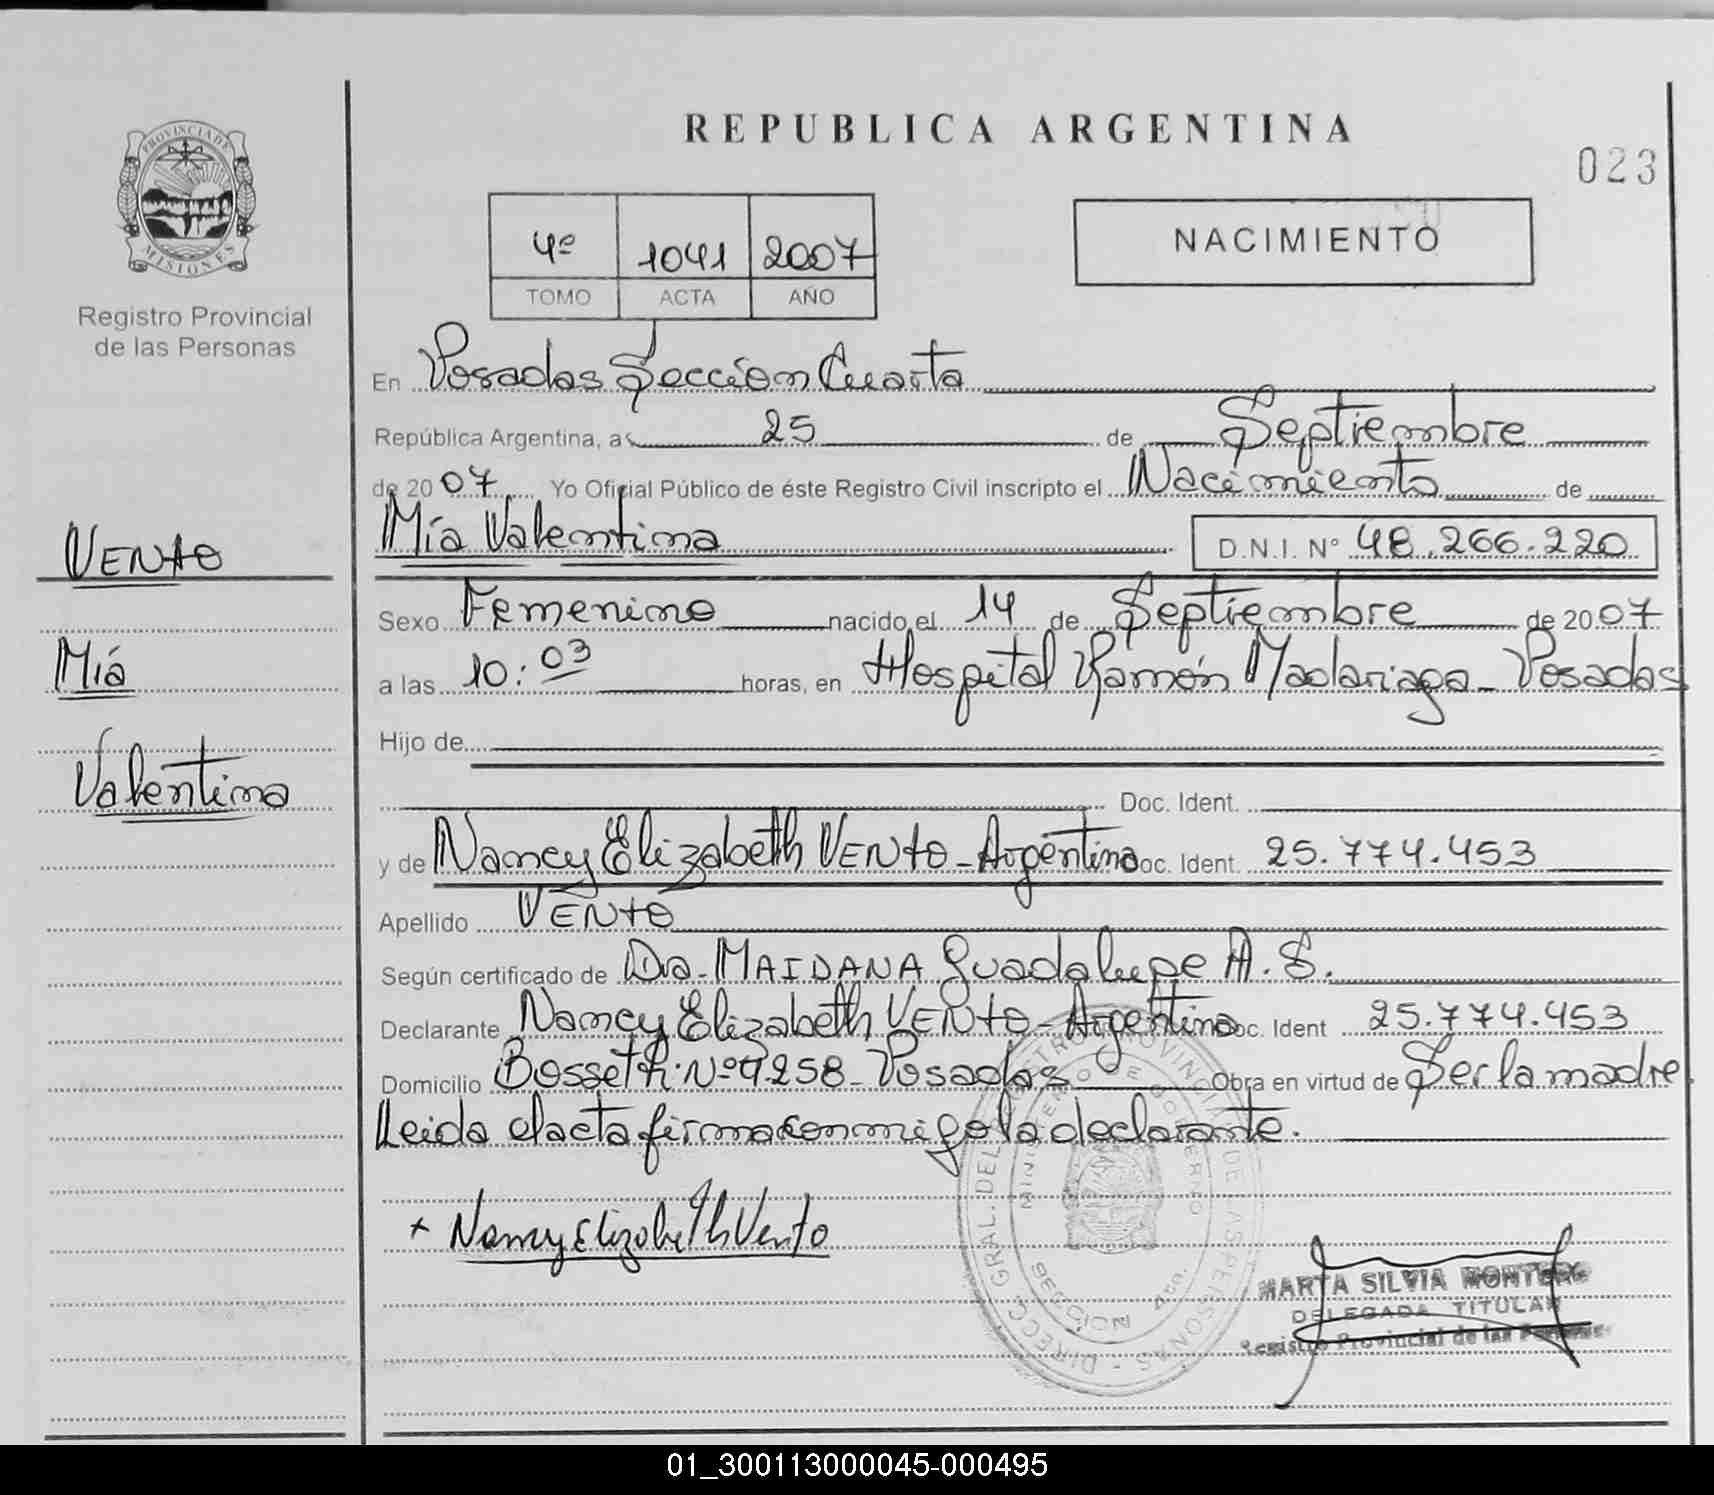 REPUBLICA ARGENTINA
023
PROVINCIA DE
MISIONES
Registro Provincial
de las Personas
4º 1041 2007
TOMO ACTA AÑO
NACIMIENTO
En Posadas Sección Cuarta
República Argentina, a 25 de Septiembre
de 2007 Yo Oficial Público de éste Registro Civil inscripto el Nacimiento de
Mía Valentina D.N.I. Nº 48.266.220
VENTO
Mía
Valentina
Sexo Femenino nacido el 14 de Septiembre de 2007
a las 10:03 horas, en Hospital Ramón Madariaga - Posadas
Hijo de
Doc. Ident.
y de Nancy Elizabeth VENTO - Argentina Doc. Ident. 25.774.453
Apellido VENTO
Según certificado de Dra. MAIDANA Guadalupe A. S.
Declarante Nancy Elizabeth VENTO - Argentina Doc. Ident 25.774.453
Domicilio Bosseth. Nº 7258 - Posadas Obra en virtud de Ser la madre
Leida el acta firma conmigo la declarante.
DIRECC. GRAL. DEL REGISTRO PROVINCIAL DE LAS PERSONAS
MINISTERIO DE GOBIERNO
SECCIÓN 4ta.
+ Nancy Elizabeth Vento
MARTA SILVIA MONTERO
DELEGADA TITULAR
Registro Provincial de las Personas
01_300113000045-000495